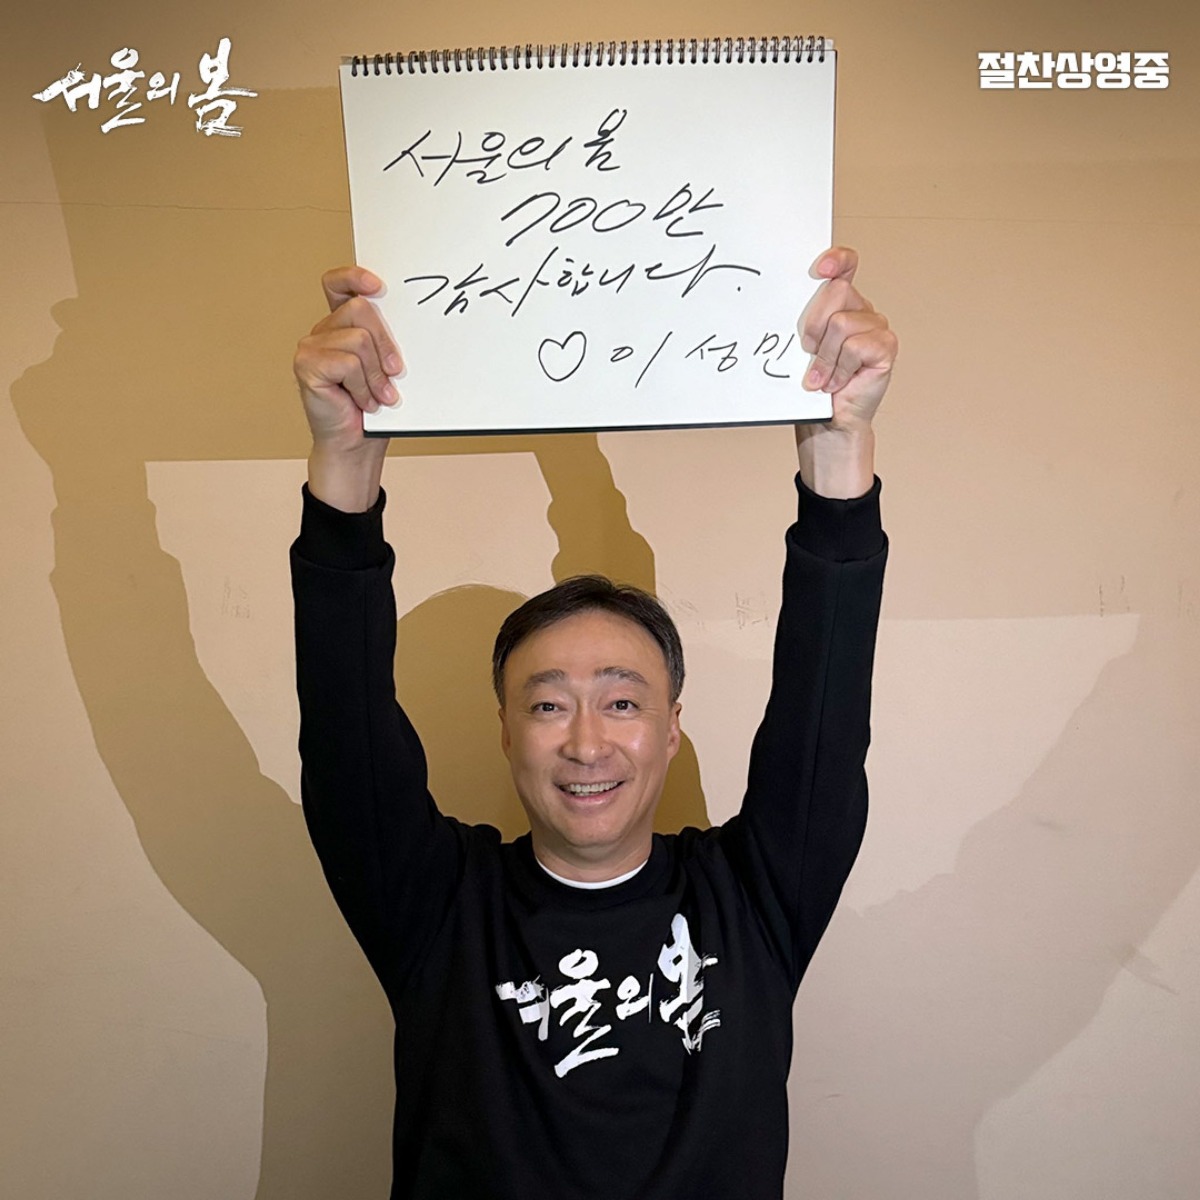 서울의 봄
절찬상영중
서울의 봄
700만
감사합니다.
♡ 이성민
서울의 봄